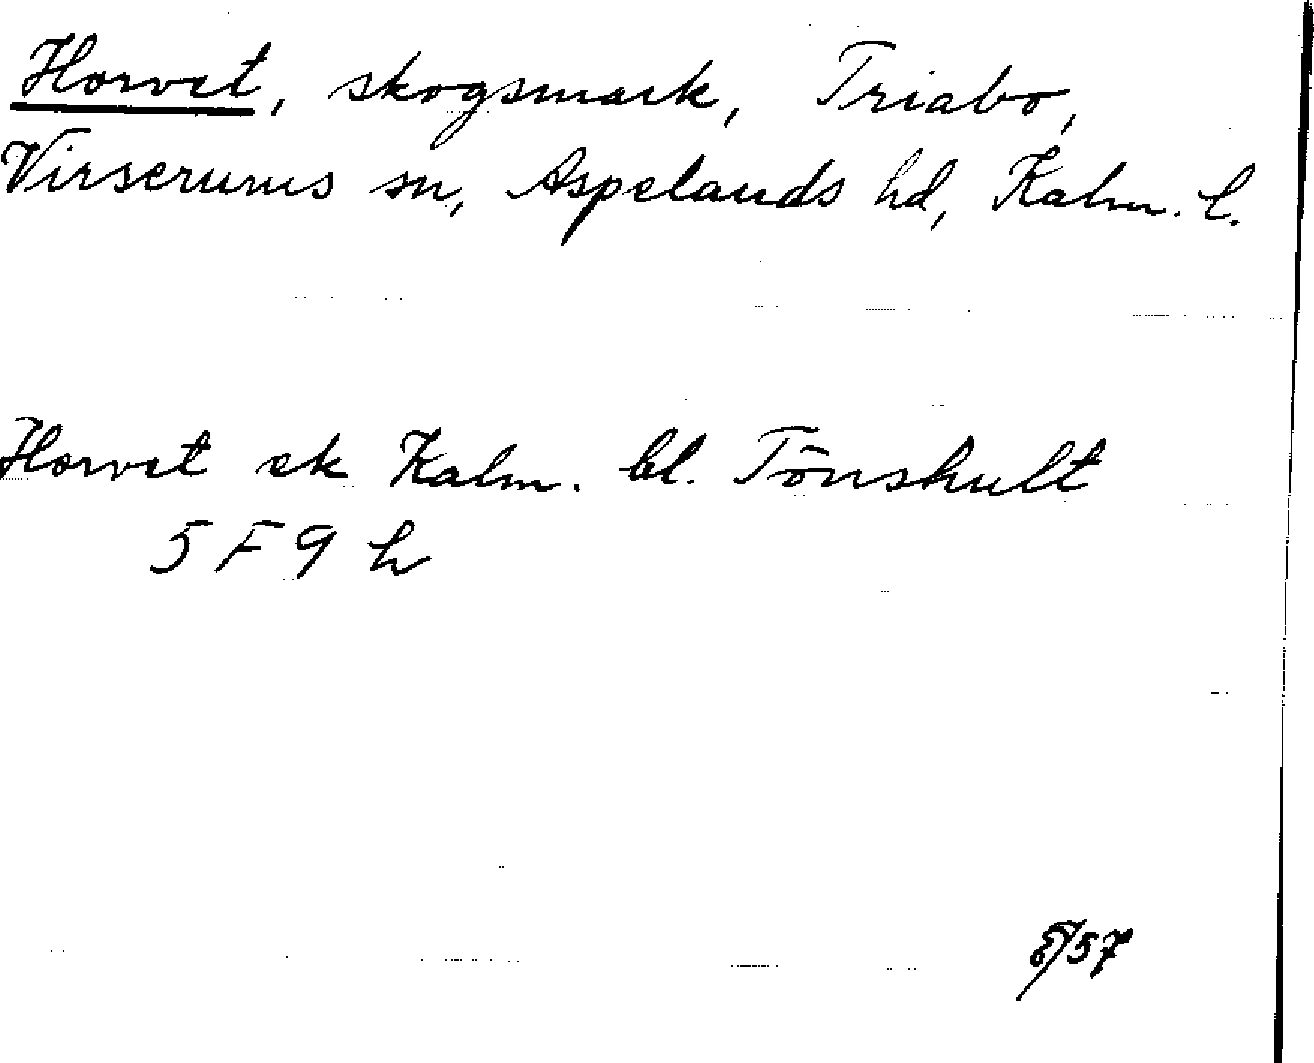 Horvet, skogsmark, Triabo,
Virserums sn, Aspelands hd, Kalm. l.
Horvet ek Kalm. bl. Tönshult
5 F 9 h
/57